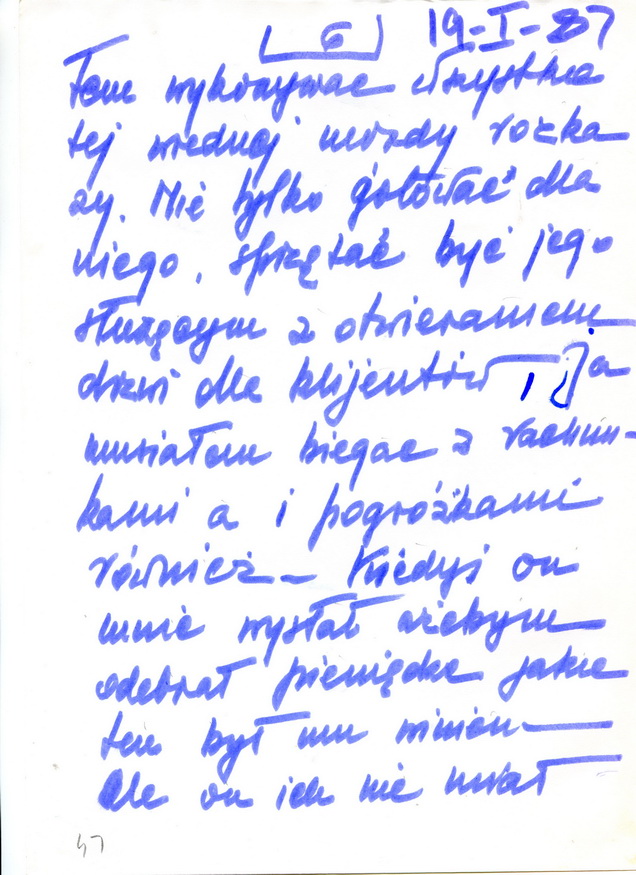 6 19-I-87
Tam wykonywać wszystkie
tej wrednej mordy rozka
zy. Nie tylko gotować dla
niego, sprzątać być jego
służącym z otwieraniem
drzwi dla klijentów, Ja
musiałem biegać z rachun-
kami a i pogróżkami
również – Kiedyś on
mnie wysłał ażebym
odebrał pieniądze jakie
ten był mu winien
Ale on ich nie miał
47